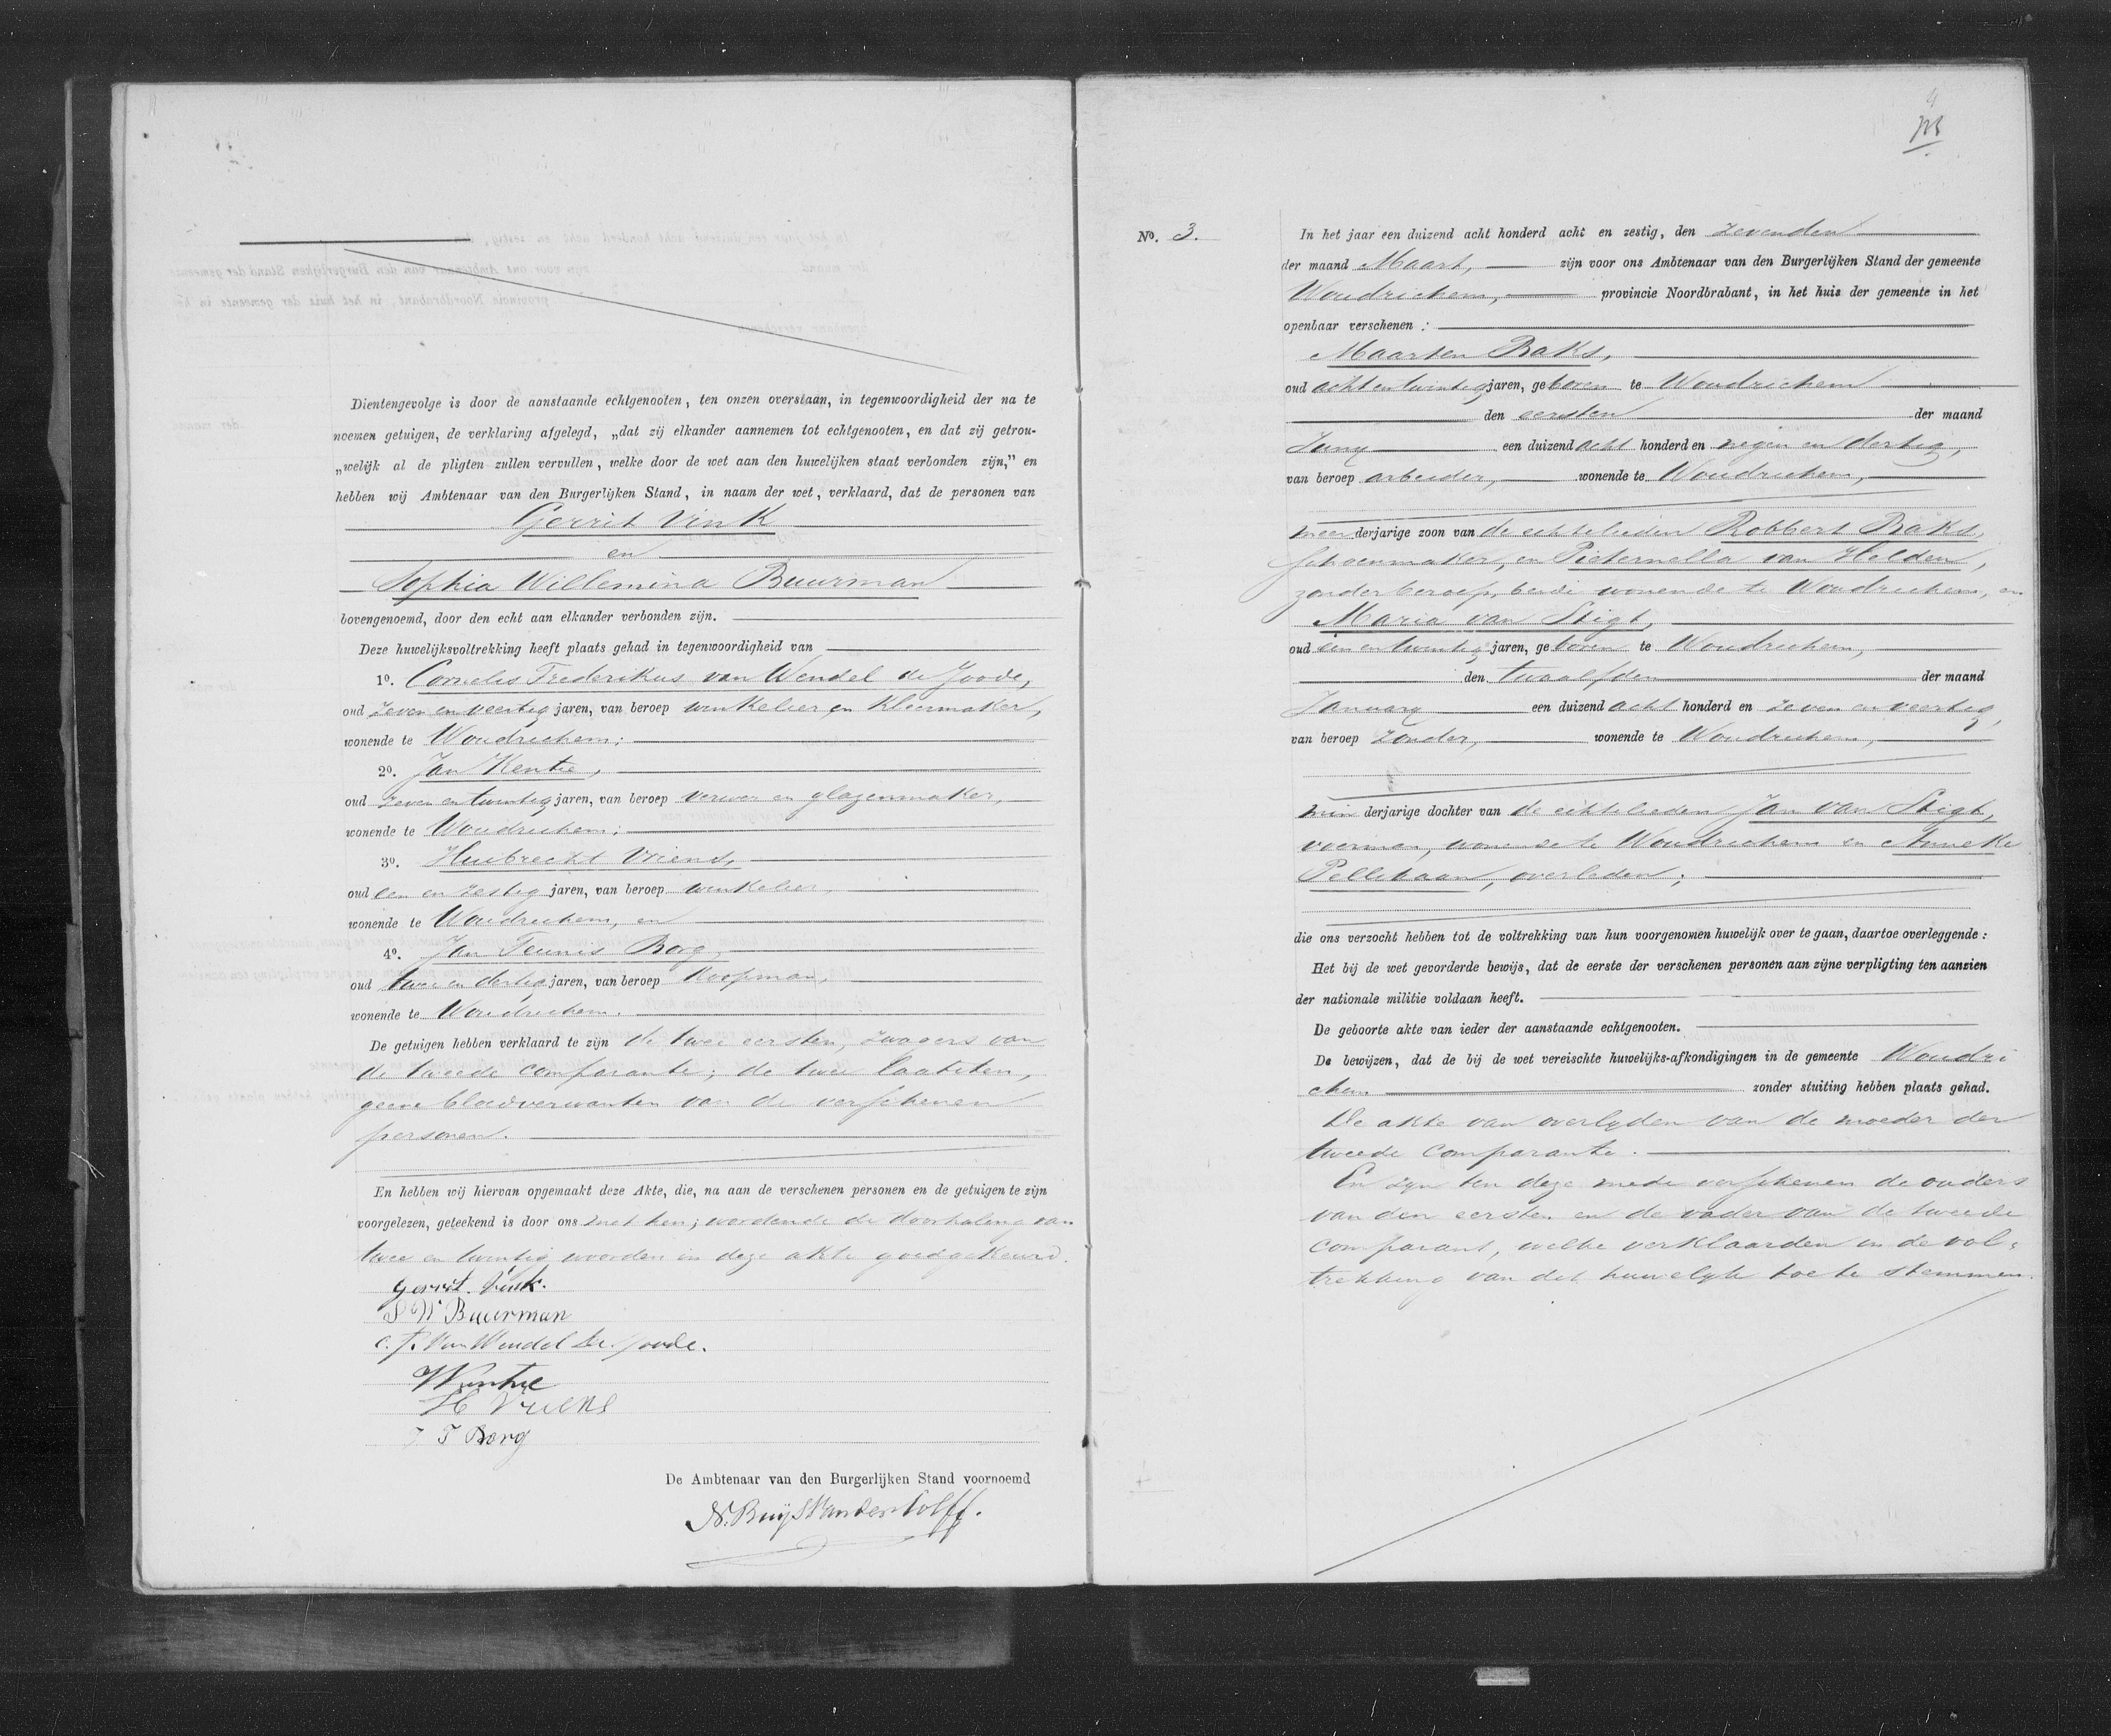 Dientengevolge is door de aanstaande echtgenooten, ten onzen overstaan, in tegenwoordigheid der na te
noemen getuigen, de verklaring afgelegd, „dat zij elkander aannemen tot echtgenooten, en dat zij getrou-
„welijk al de pligten zullen vervullen, welke door de wet aan den huwelijken staat verbonden zijn,” en
hebben wij Ambtenaar van den Burgerlijken Stand, in naam der wet, verklaard, dat de personen van
Gerrit Vink
en
Sophia Willemina Buurman
bovengenoemd, door den echt aan elkander verbonden zijn.
Deze huwelijksvoltrekking heeft plaats gehad in tegenwoordigheid van
1o. Cornelis Frederikus van Wendel de Joode,
oud zeven en veertig jaren, van beroep winkelier en kleermaker,
wonende te Woudrichem;
2o. Jan Kentie,
oud zeven en twintig jaren, van beroep verwer en glazenmaker,
wonende te Woudrichem;
3o. Huibrecht Vriens,
oud een en zestig jaren, van beroep winkelier,
wonende te Woudrichem, en
4o. Jan Teunis Borg,
oud twee en dertig jaren, van beroep koopman,
wonende te Woudrichem.
De getuigen hebben verklaard te zijn de twee eersten, zwagers van
de tweede comparante; de twee laatsten,
geene bloedverwanten van de verschenen
personen.
En hebben wij hiervan opgemaakt deze Akte, die, na aan de verschenen personen en de getuigen te zijn
voorgelezen, geteekend is door ons met hen; wordende de doorhaling van
twee en twintig woorden in deze akte goedgekeurd.
Gerrit Vink.
S W Buurman
C. F. van Wendel de Joode.
Kentie
H Vriens
J T Borg
De Ambtenaar van den Burgerlijken Stand voornoemd
N. Buijs van der Kolff.
No. 3.
In het jaar een duizend acht honderd acht en zestig, den zevenden
der maand Maart, zijn voor ons Ambtenaar van den Burgerlijken Stand der gemeente
Woudrichem, provincie Noordbrabant, in het huis der gemeente in het
openbaar verschenen:
Maarten Baks,
oud acht en twintig jaren, geboren te Woudrichem
den eersten der maand
Juny een duizend acht honderd en negen en dertig,
van beroep arbeider, wonende te Woudrichem,
meerderjarige zoon van de echtelieden Robbert Baks,
schoenmaker, en Pieternella van Helden,
zonder beroep, beide wonende te Woudrichem, en
Maria van Stigt,
oud een en twintig jaren, geboren te Woudrichem,
den twaalfden der maand
January een duizend acht honderd en zeven en veertig,
van beroep zonder, wonende te Woudrichem,
minderjarige dochter van de echtelieden Jan van Stigt,
voerman, wonende te Woudrichem en Anneke
Pellikaan, overleden;
die ons verzocht hebben tot de voltrekking van hun voorgenomen huwelijk over te gaan, daartoe overleggende:
Het bij de wet gevorderde bewijs, dat de eerste der verschenen personen aan zijne verpligting ten aanzien
der nationale militie voldaan heeft.
De geboorte akte van ieder der aanstaande echtgenooten.
De bewijzen, dat de bij de wet vereischte huwelijks-afkondigingen in de gemeente Woudri
chem. zonder stuiting hebben plaats gehad.
De akte van overlyden van de moeder der
tweede comparante.
En zyn ten deze mede verschenen de ouders
van den eersten en de vader van de tweede
comparant, welke verklaarden in de vol-
trekking van dit huwelyk toe te stemmen.